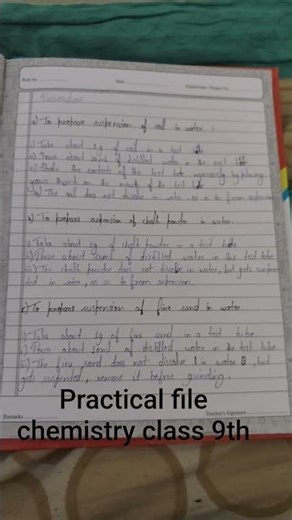 Roll No.
Date
Experiment / Project No.
Procedure
a) To prepare suspension of soil in water :
i) Take about 1g of soil in a test tube
ii) Pour about 10ml of distilled water in the test tube
iii) Shake the contents of the test tube vigorously by placing
your thumb on the mouth of the test tube
iv) The soil does not dissolve in water, so as to form suspension
b) To prepare suspension of chalk powder in water.
i) Take about 1g of chalk powder in a test tube
ii) Pour about 10ml of distilled water in the test tube
iii) The chalk powder does not dissolve in water, but gets suspen
ded in water, so as to form suspension.
c) To prepare suspension of fine sand in water.
i) Take about 1g of fine sand in a test tube.
ii) Pour about 10ml of distilled water in the test tube.
iii) The fine sand does not dissolve in water, but
gets suspended, remove it before grinding.
Remarks
Teacher's Signature
Practical file
chemistry class 9th